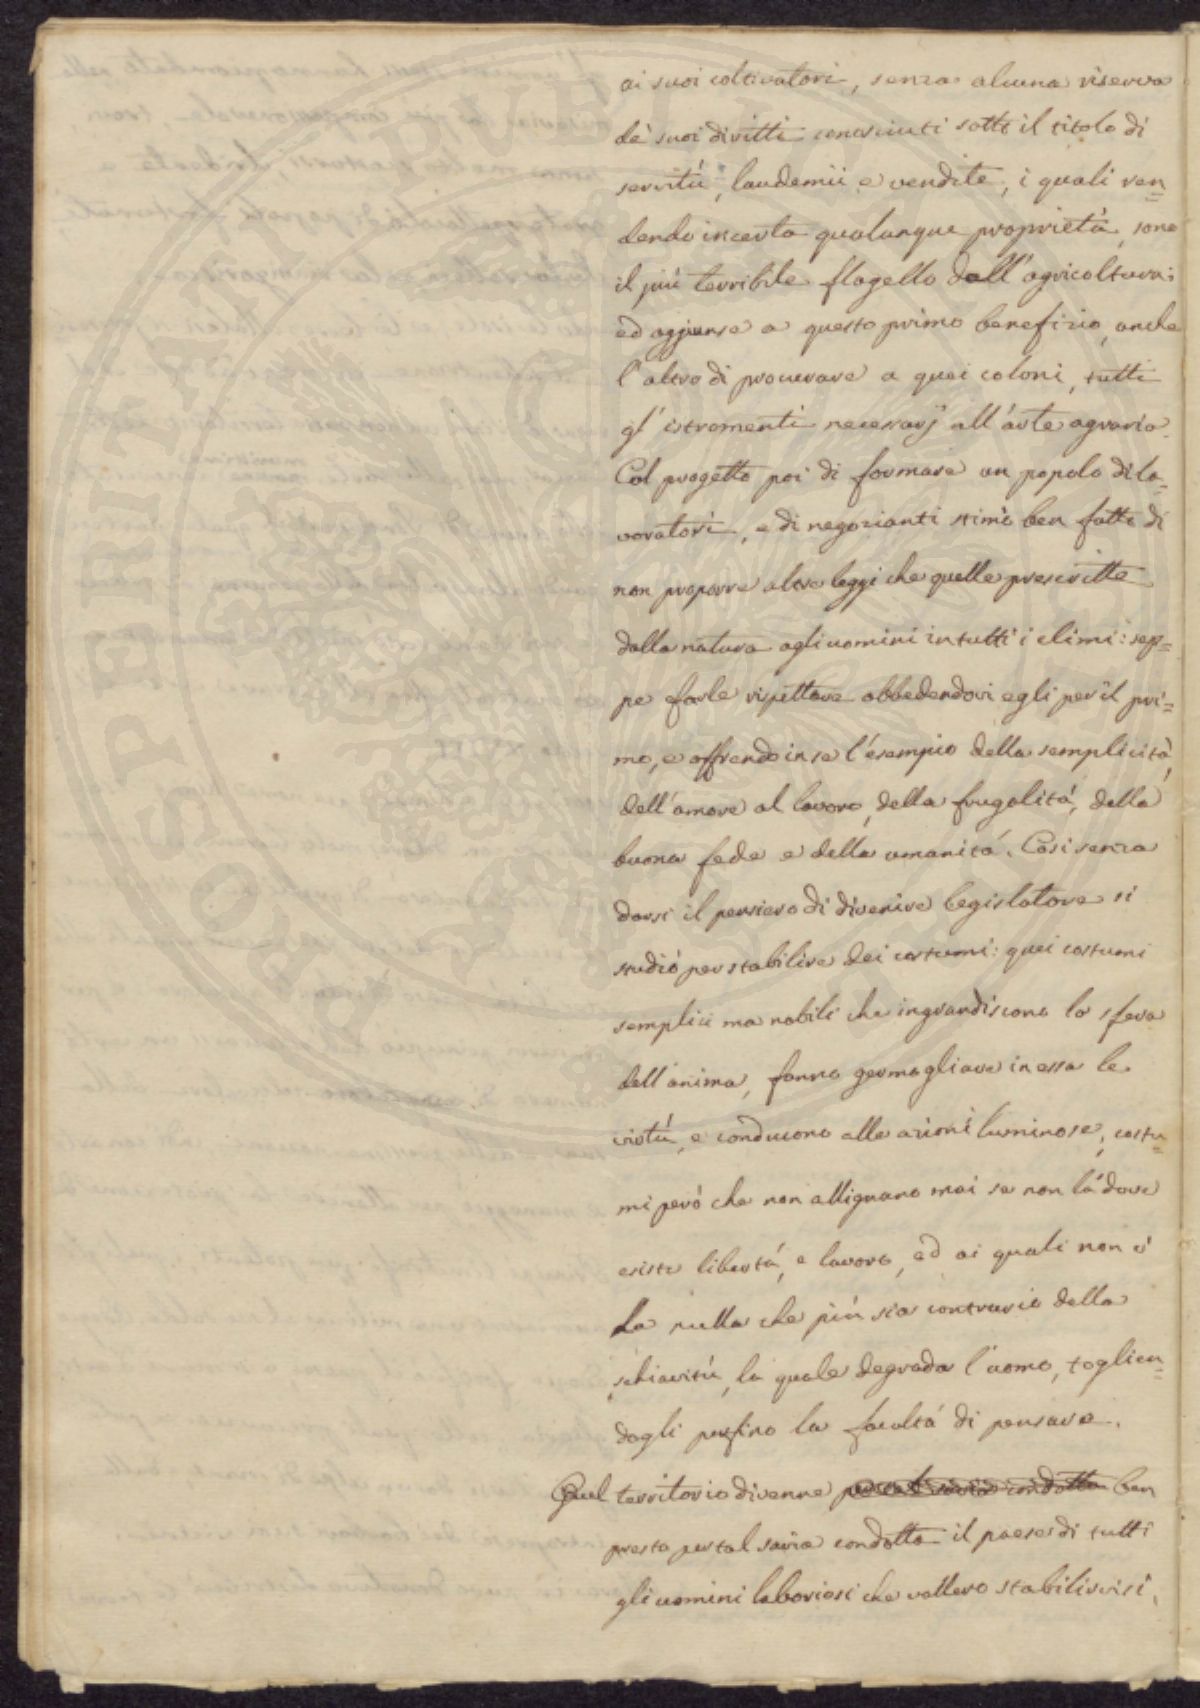 ai suoi coltivatori, senza alcuna riserva
de' suoi diritti conosciuti sotto il titolo di
servitù, laudemii e vendite, i quali ren=
dendo incerta qualunque proprietà, sono
il più terribile flagello dell'agricoltura:
ed aggiunse a questo primo benefizio, anche
l'altro di procurare a quei coloni, tutti
gl'istromenti necessarj all'arte agraria.
Col progetto poi di formare un popolo di la=
voratori, e di negozianti stimò ben fatto di
non proporre altre leggi che quelle prescritte
dalla natura agli uomini in tutti i climi: sep=
pe farle rispettare obbedendovi egli per il pri=
mo, e offrendo in se l'esempio della semplicità,
dell'amore al lavoro, della frugalità, della
buona fede e della umanità. Così senza
darsi il pensiero di divenire legislatore si
studiò per stabilire dei costumi: quei costumi
semplici ma nobili che ingrandiscono la sfera
dell'anima, fanno germogliare in essa le
virtù, e conducono alle azioni luminose, costu=
mi però che non allignano mai se non là dove
esiste libertà, e lavoro, ed ai quali non v'
ha nulla che più sia contrario della
schiavitù, la quale degrada l'uomo, toglien=
dogli perfino la facoltà di pensare.
Quel territorio divenne per tal savia condotta ben
presto per tal savia condotta il paese di tutti
gli uomini laboriosi che vollero stabilirvisi,
POSPRINTAT PVBLICA